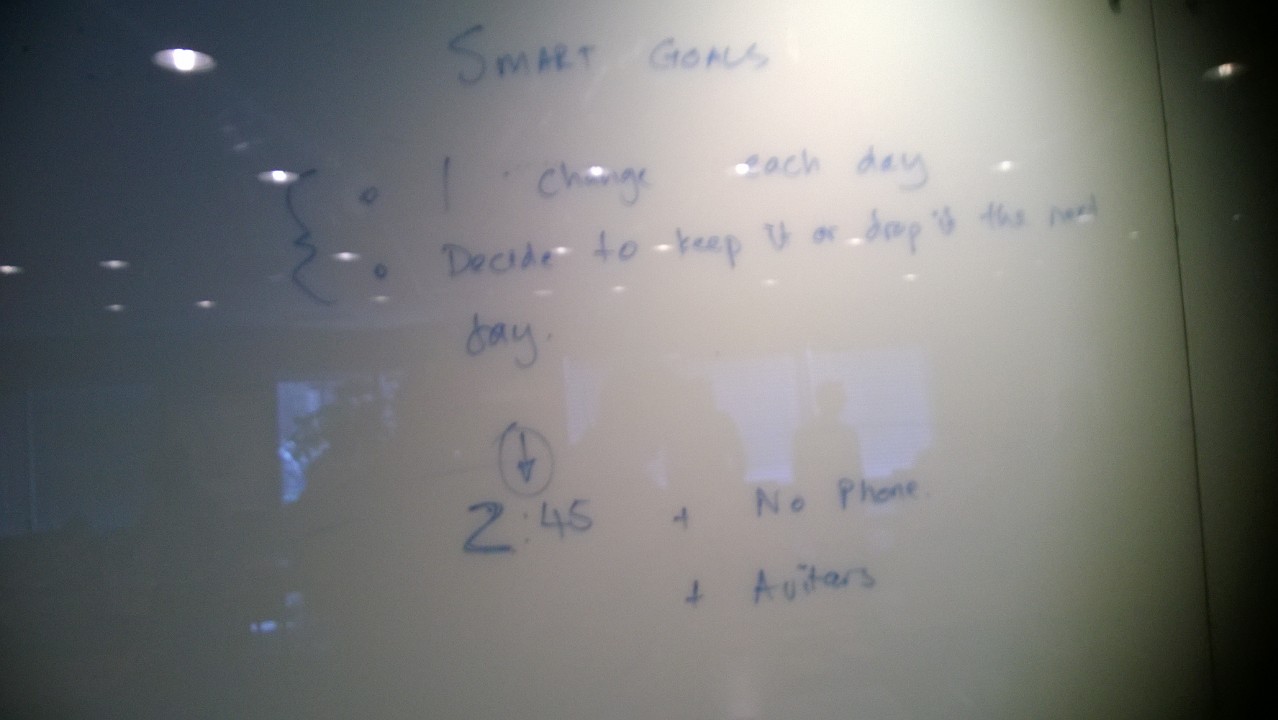 SMART GOALS
1 change each day
Decide to keep it or drop it the next
day.
2:45 + No Phone.
+